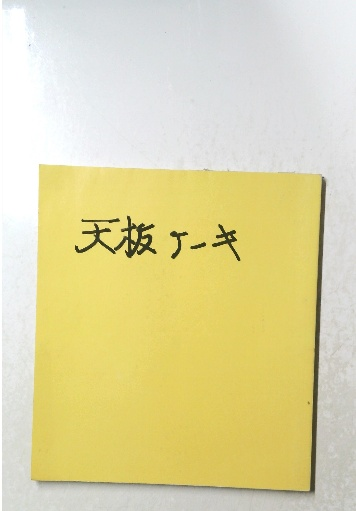 天板ケーキ